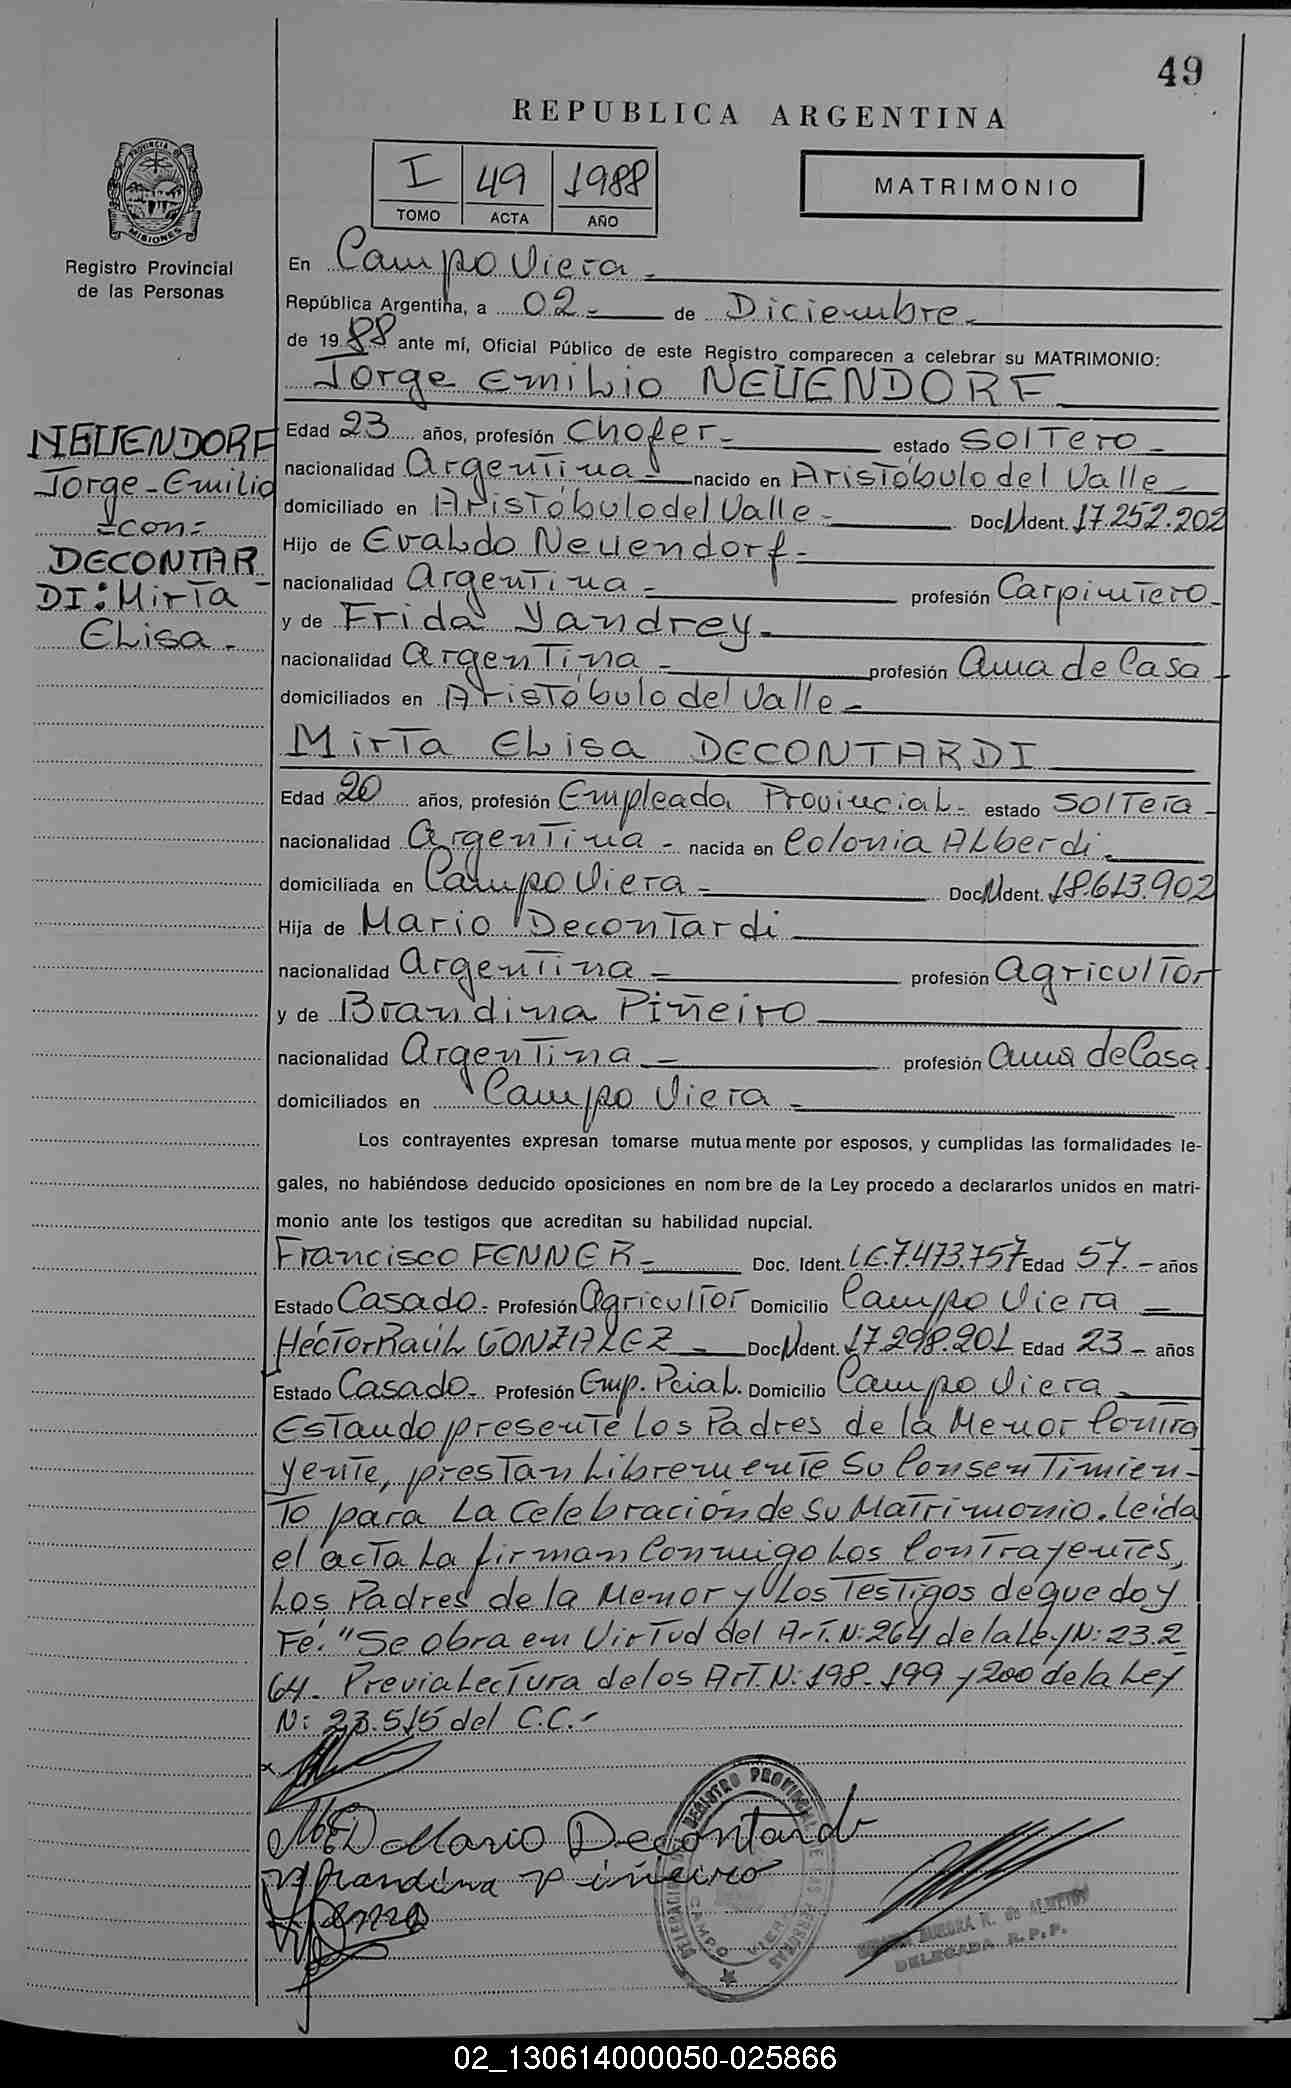 49
REPUBLICA ARGENTINA
I 49 1988
TOMO ACTA AÑO
MATRIMONIO
PROVINCIA DE
MISIONES
Registro Provincial
de las Personas
En Campo Viera.
República Argentina, a 02- de Diciembre.
de 1988 ante mí, Oficial Público de este Registro comparecen a celebrar su MATRIMONIO:
Jorge Emilio NEUENDORF
NEUENDORF
Jorge-Emilio
=con=
DECONTAR
DI: Mirta
Elisa.
Edad 23 años, profesión Chofer- estado Soltero-
nacionalidad Argentina- nacido en Aristóbulo del Valle-
domiciliado en Aristóbulo del Valle- Doc. N. Ident. 17.252.202
Hijo de Evaldo Neuendorf-
nacionalidad Argentina- profesión Carpintero-
y de Frida Yandrey-
nacionalidad Argentina- profesión Ama de Casa-
domiciliados en Aristóbulo del Valle-
Mirta Elisa DECONTARDI
Edad 20 años, profesión Empleada Provincial- estado Soltera-
nacionalidad Argentina- nacida en Colonia Alberdi-
domiciliada en Campo Viera- Doc. N. Ident. 18.613.902
Hija de Mario Decontardi
nacionalidad Argentina- profesión Agricultor
y de Brandina Piñeiro
nacionalidad Argentina- profesión Ama de Casa
domiciliados en Campo Viera-
Los contrayentes expresan tomarse mutuamente por esposos, y cumplidas las formalidades le-
gales, no habiéndose deducido oposiciones en nombre de la Ley procedo a declararlos unidos en matri-
monio ante los testigos que acreditan su habilidad nupcial.
Francisco FENNER- Doc. Ident. LE.7.473.757 Edad 57.- años
Estado Casado- Profesión Agricultor Domicilio Campo Viera
Héctor Raúl GONZALEZ- Doc. N. Ident. 17.298.201 Edad 23- años
Estado Casado- Profesión Emp. Pcial. Domicilio Campo Viera-
Estando presente los Padres de la Menor Contra
yente, prestan Libremente Su Consentimien-
to para La Celebración de Su Matrimonio. Leída
el acta La firman Conmigo Los Contrayentes,
Los Padres de la Menor y Los Testigos de que doy
Fé. "Se obra en Virtud del Art. N: 264 de la Ley N: 23.2
64. Previa Lectura de los Art. N: 198-199 y 200 de la Ley
N: 23.515 del C.C.-
Mario Decontardi
Brandina Piñeiro
REGISTRO PROVINCIAL DE LAS PERSONAS
CAMPO VIERA
DELEGADA R.P.P.
02_130614000050-025866